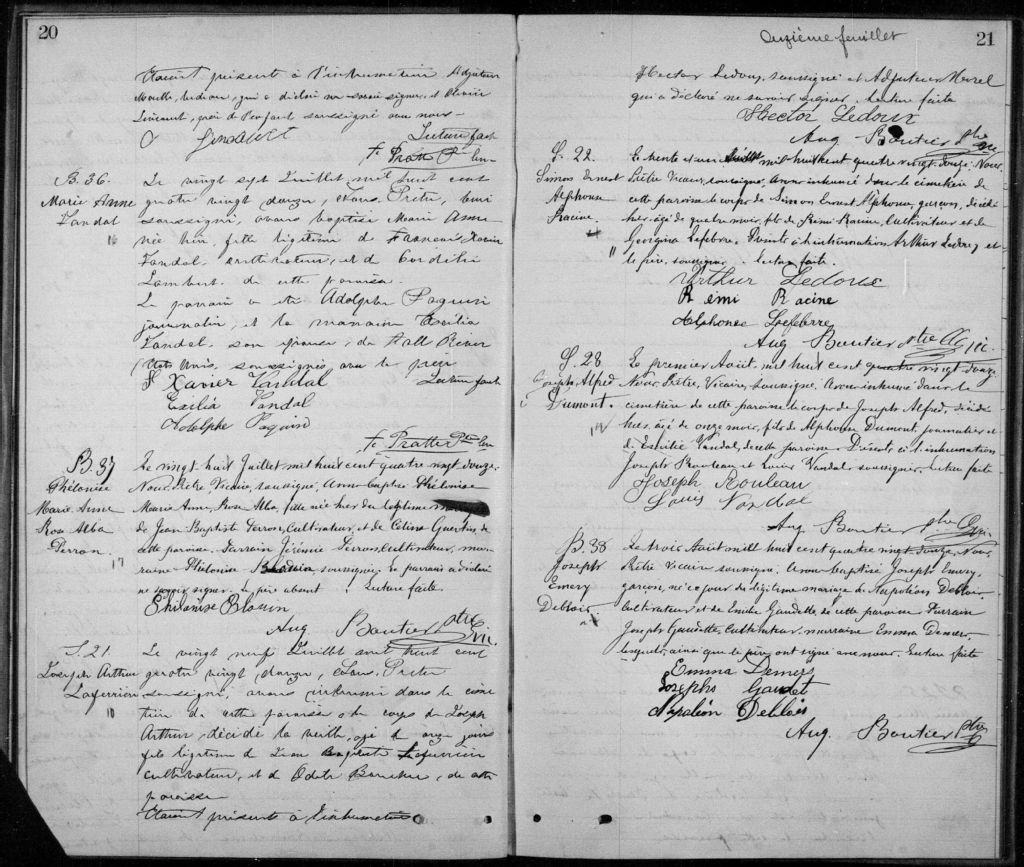 20
Etaient présents à l'inhumation Adjuteur
Morelle, bedeau, qui a déclaré ne savoir signer, et
père de l'enfant soussigné avec nous
Lecture faite
F. Pratte Ptre
B. 36.
Marie Anne
Vandal
16
Le vingt sept Juillet, mil huit cent
quatre vingt douze, Nous, Prêtre, curé
soussigné, avons baptisé Marie Anne
née hier, fille légitime de François Xavier
Vandal, cultivateur, et de Cordélie
Lambert, de cette paroisse.
Le parrain a été Adolphe Paquin
journalier, et la marraine Exilia
Vandal, son épouse, de Fall River
Etats Unis, soussignés avec le père
F Xavier Vandal
Lecture faite
Exilia Vandal
Adolphe Paquin
F. Pratte Ptre
B. 37
Philonise
Marie Anne
Rose Alba
Perron.
17
Le vingt huit Juillet mil huit cent quatre vingt douze,
Nous, Prêtre, Vicaire, soussigné, Avons baptisé Philonise
Marie Anne Rose Alba, fille née hier du légitime mariage
de Jean Baptiste Perron, Cultivateur, et de Célina Guertin, de
cette paroisse. Parrain Jérémie Perron, Cultivateur, mar-
raine Philonise soussignée. Le parrain a déclaré
ne savoir signer. Le père absent. Lecture faite.
Philonise Blouin
Aug Boutier ptre Vic
S. 21.
Joseph Arthur
Laferrière
10
Le vingt neuf Juillet mil huit cent
quatre vingt douze, Nous, Prêtre
soussigné, avons inhumé dans le cime
tière de cette paroisse le corps de Joseph
Arthur, décédé la veille, agé de onze jours
fils légitime de Jean Baptiste Laferrière
cultivateur, et de Odile , de cette
paroisse
Etaient présents à l'inhumation
Onzième feuillet
21
Hector Ledoux, soussigné et Adjuteur Morel
qui a déclaré ne savoir signer. Lecture faite
Hector Ledoux
Aug Boutier ptre Vic
S. 22.
Simon Ernest
Alphonse
Racine.
11
Le trente et un Juillet mil huit cent quatre vingt douze, Nous,
Prêtre Vicaire, soussigné, Avons inhumé dans le cimetière de
cette paroisse le corps de Simon Ernest Alphonse, garçon, décédé
hier, âgé de quatre mois, fils de Rémi Racine, Cultivateur et de
Georgina Lefebvre. Présents à l'inhumation Arthur Ledoux et
le père, soussignés. Lecture faite.
Arthur Ledoux
Rémi Racine
Alphonse Lefebvre
Aug Boutier ptre Vic
S. 28
Joseph Alfred
Dumont.
Le premier Août, mil huit cent quatre vingt douze
Nous, Prêtre, Vicaire, soussigné, Avons inhumé dans le
cimetière de cette paroisse le corps de Joseph Alfred, décédé
hier, âgé de onze mois, fils de Alphonse Dumont, journalier et
de Emilie Vandal, de cette paroisse Présents à l'inhumation
Joseph Rouleau et Louis Vandal soussignés. Lecture faite
Joseph Rouleau
Louis Vandal
Aug Boutier ptre Vic
B. 38
Joseph
Emery
Deblois
Le trois Août mil huit cent quatre vingt douze, Nous,
Prêtre Vicaire soussigné, Avons baptisé Joseph Emery,
garçon, né ce jour du légitime mariage de Napoléon Deblois,
Cultivateur et de Emilie Gaudette, de cette paroisse Parrain
Joseph Gaudette, Cultivateur, marraine Emma Demers,
lesquels, ainsi que le père, ont signé avec nous. Lecture faite
Emma Demers
Josephs Gaudet
Napoléon Deblois
Aug. Boutier ptre